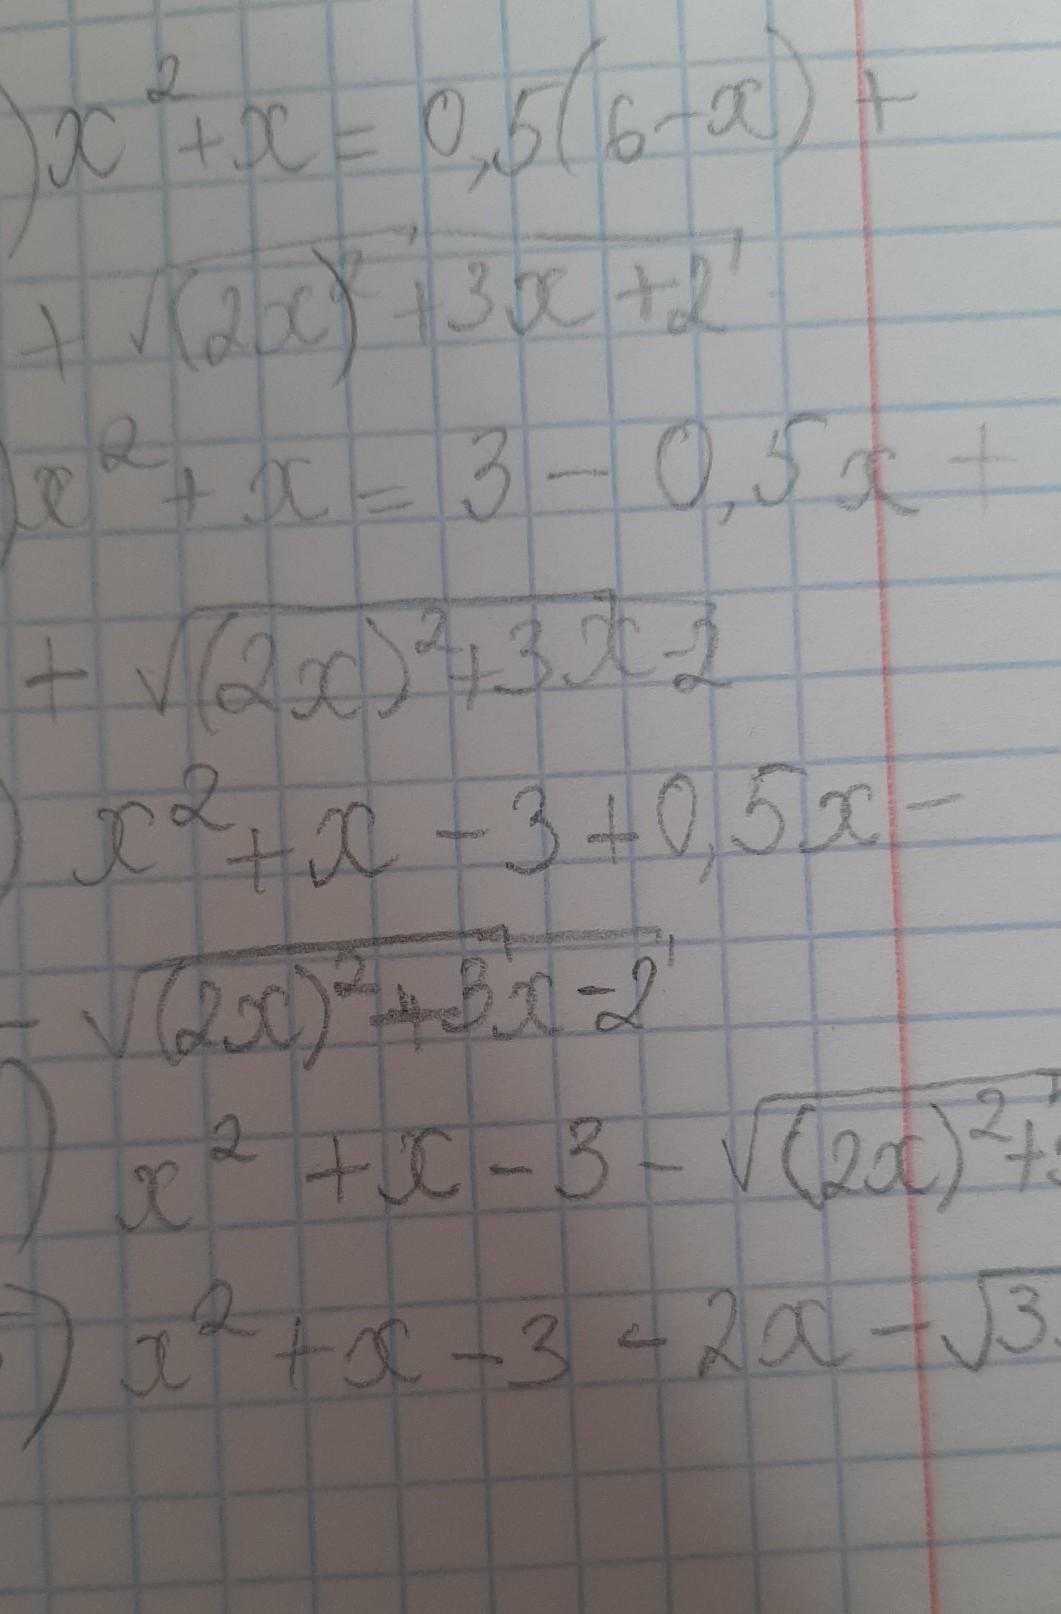 ) x² + x = 0,5(6 - x) +
+ √((2x)² + 3x + 2)
) x² + x = 3 - 0,5x +
+ √((2x)² + 3x - 2)
) x² + x - 3 + 0,5x -
- √((2x)² + 3x - 2)
) x² + x - 3 - √((2x)² +
) x² + x - 3 - 2x - √3